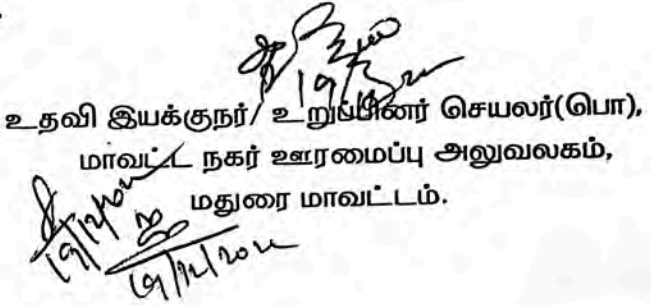 உதவி இயக்குநர்/ உறுப்பினர் செயலர்(பொ),
மாவட்ட நகர் ஊரமைப்பு அலுவலகம்,
மதுரை மாவட்டம்.
19/12/2022